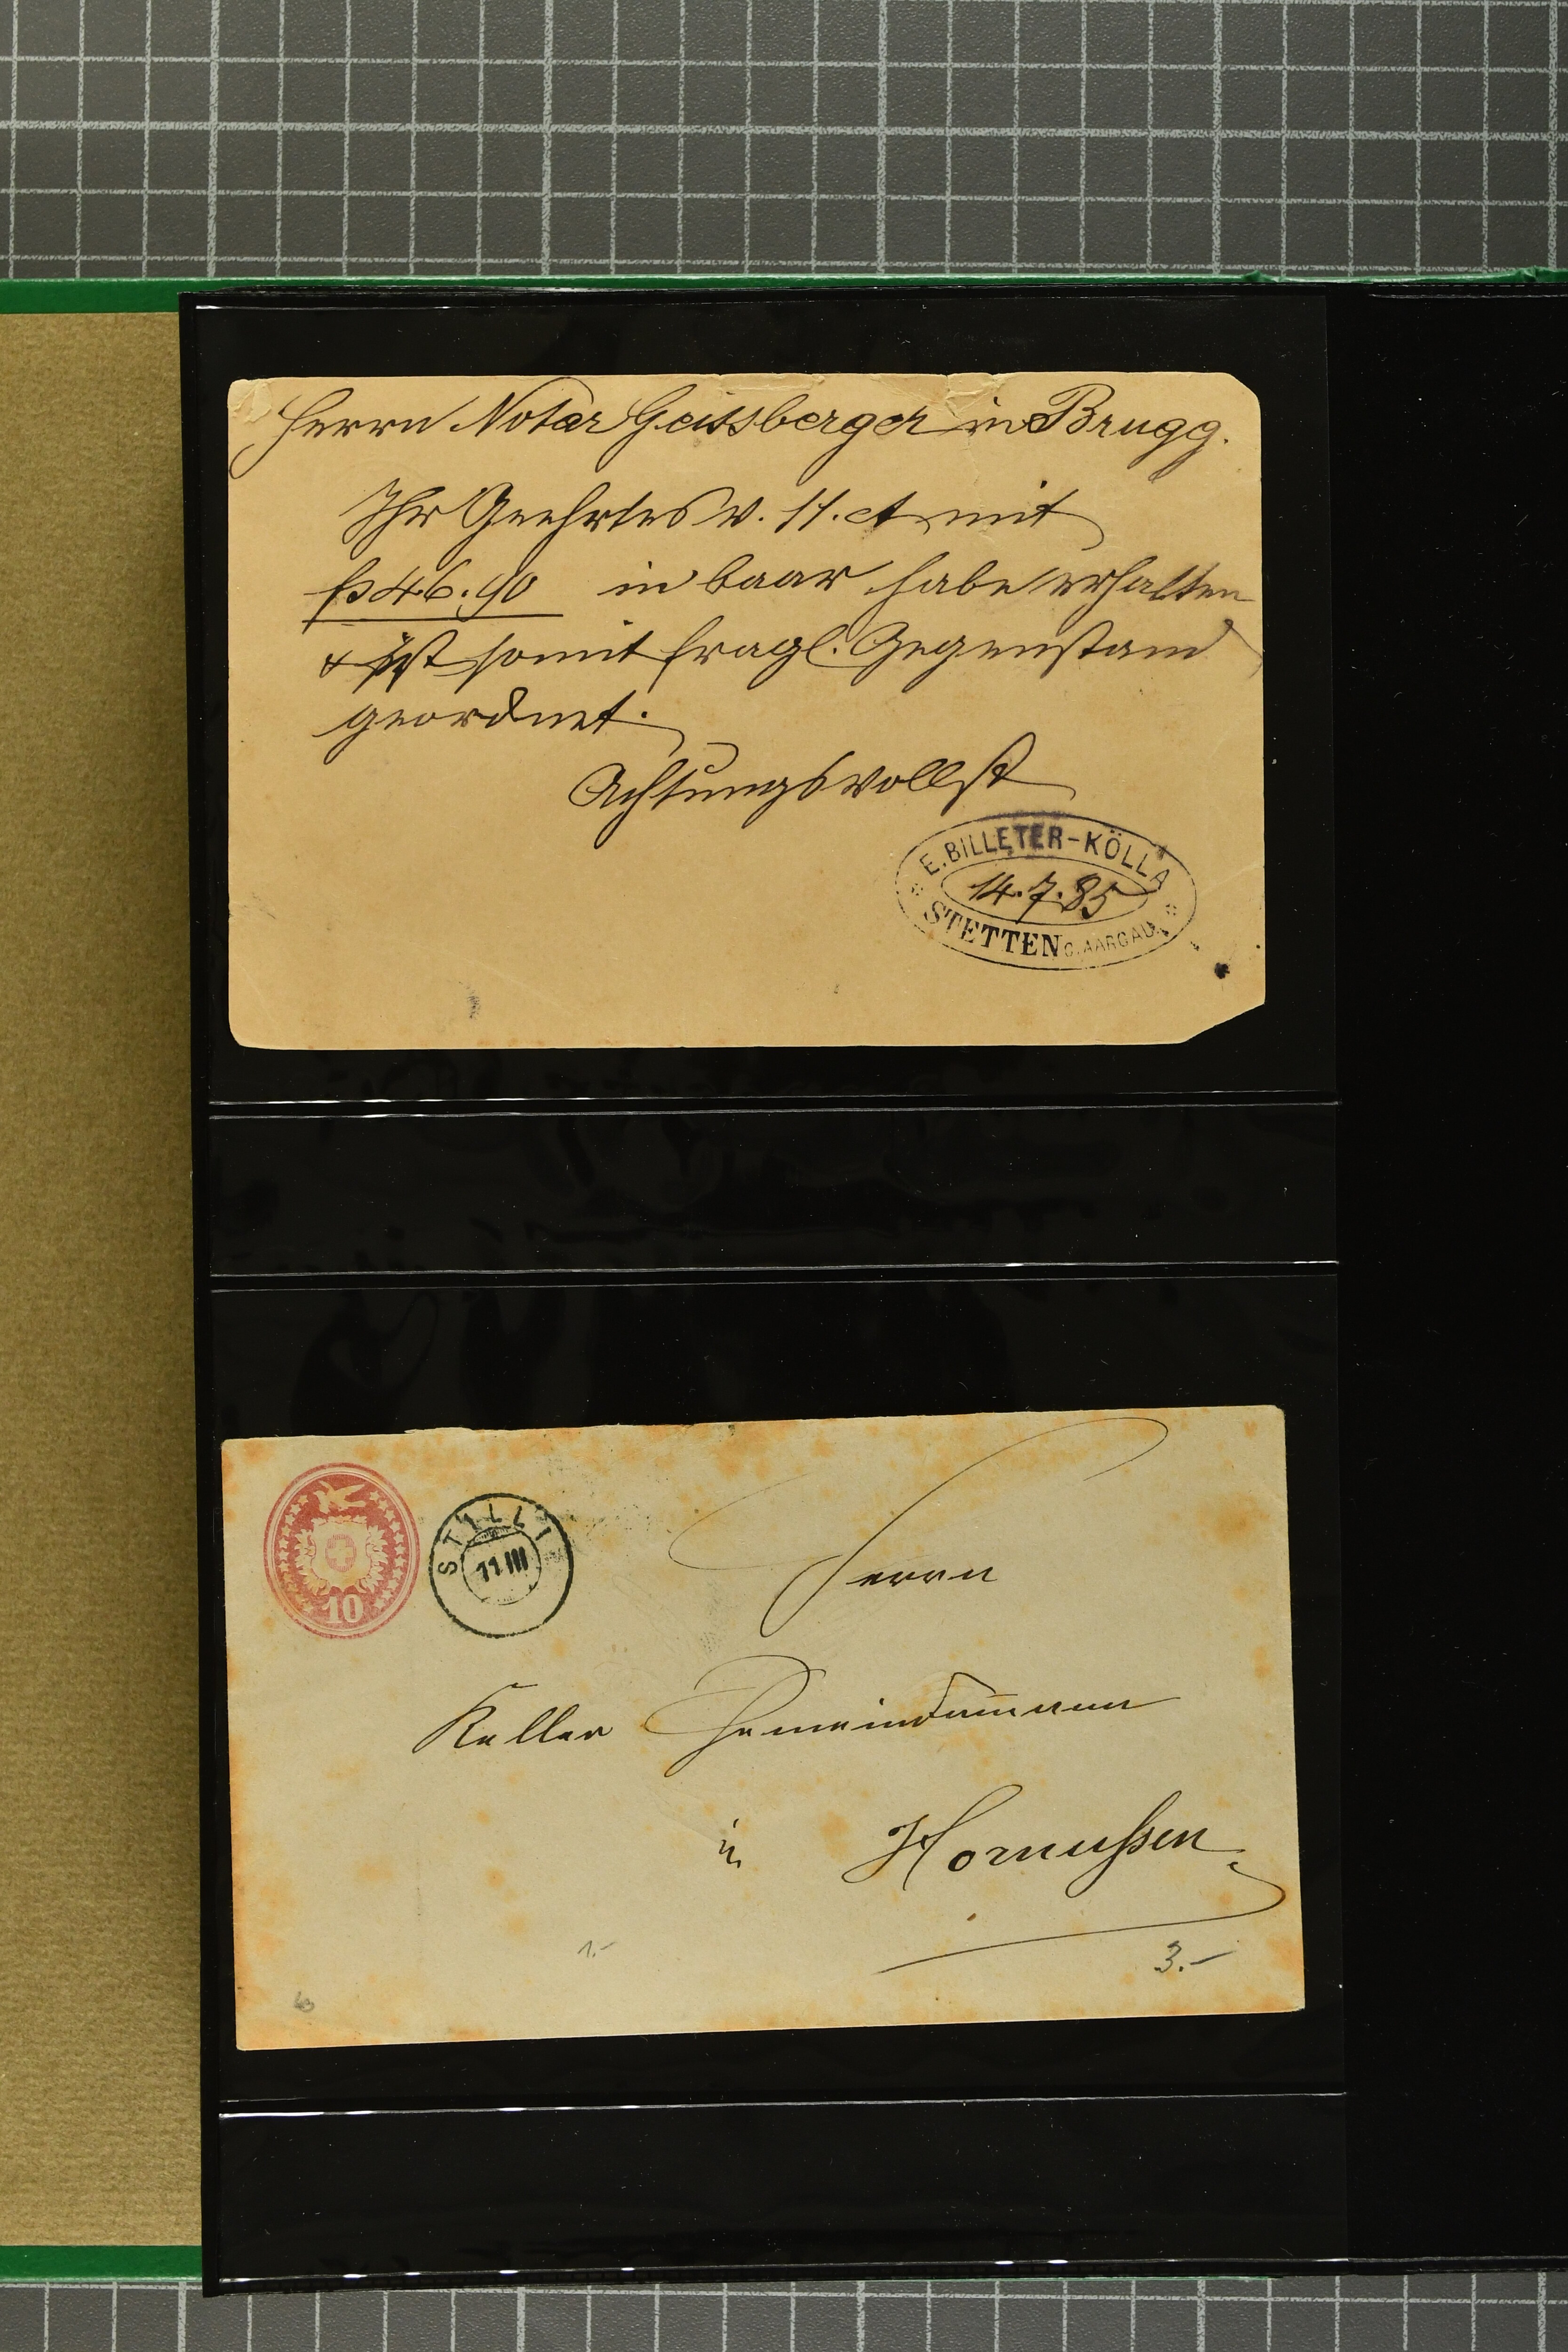 Herrn Notar Geissberger in Brugg.
Ihr Geehrtes v. 11. ct. mit
fs 46.90 in baar habe erhalten
& ist somit fragl. Gegenstand
geordnet.
Achtungsvollst
E. BILLETER-KÖLLA
14.7.85
STETTEN C. AARGAU
10
STILLI
11 III
Herrn
Keller Gemeindammann
in Hornußen
1.-
3.-